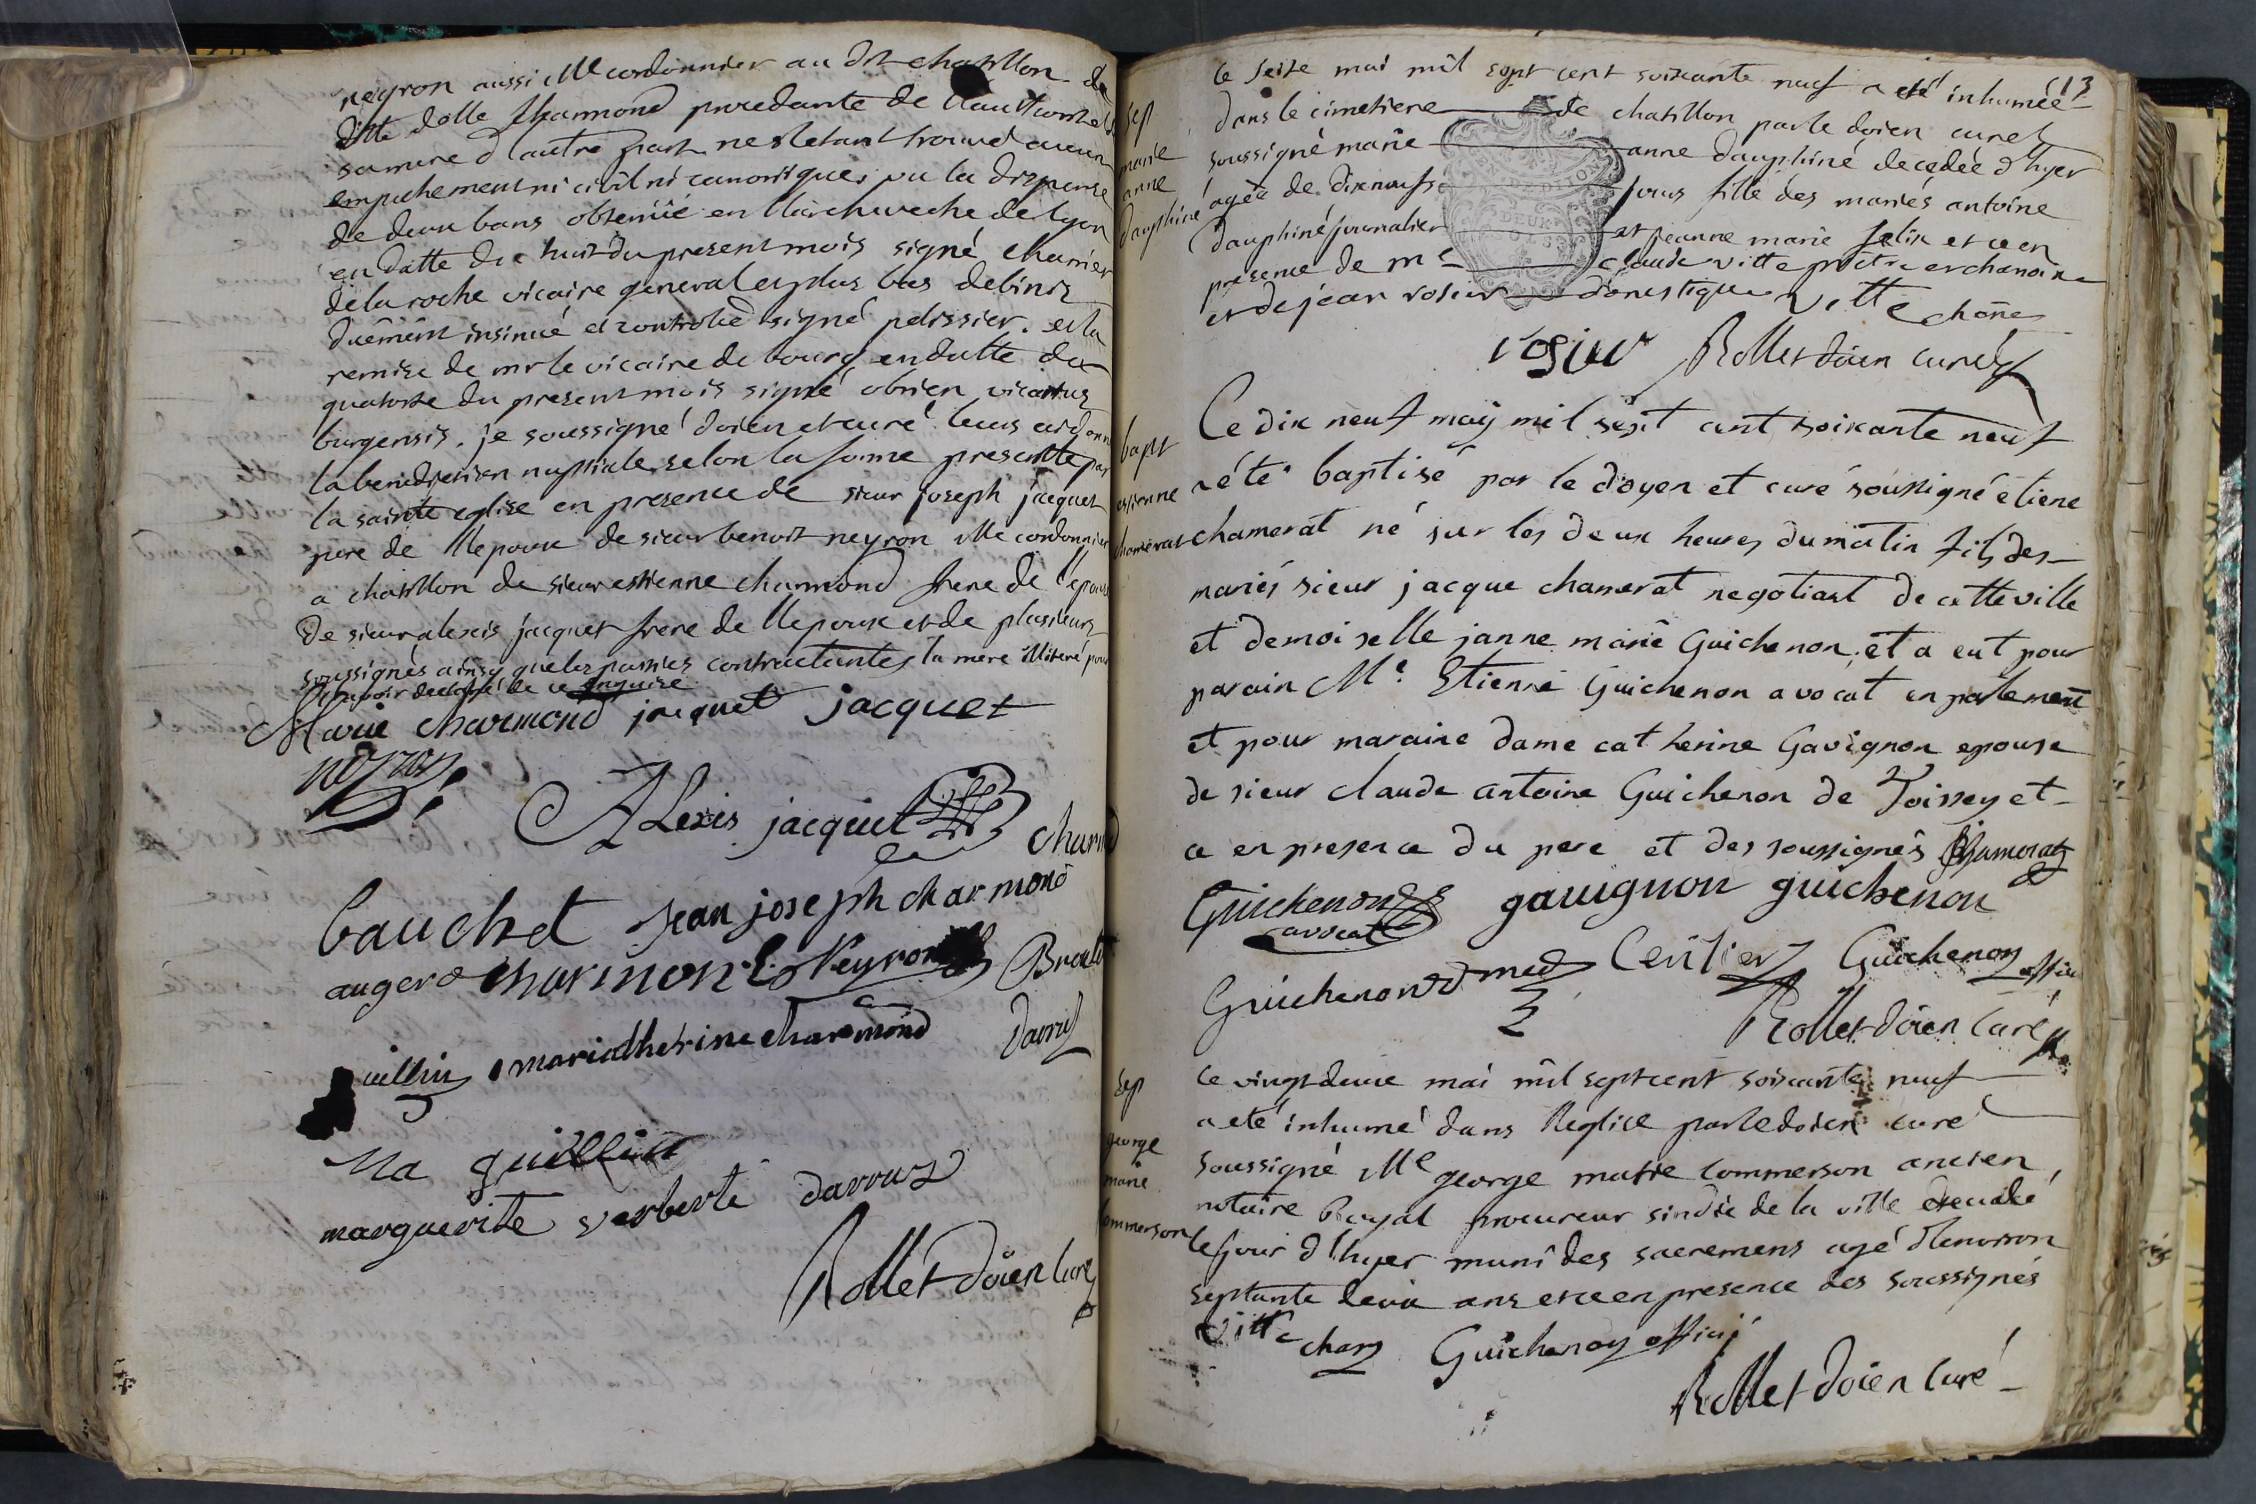 neyron aussi Me cordonnier au dit chatillon de
ditte dolle Charmond procedante de l'authorité de
sa mere d'autre part ne s'etant trouvé aucun
empechement ni civil ni canonique, vu la dispense
de deux bans obtenüe en l'archeveché de lyon
en datte du huit du present mois signé charrier
de la roche vicaire general et plus bas
duëment insinué et controllé signé pelissier. et la
remise de mr le vicaire de bourg en datte du
quatorse du present mois signé obrien vicarius
burgensis. je soussigné doien et curé leurs ai donné
la benediction nuptiale selon la forme prescritte par
la sainte eglise en presence de sieur joseph jacquet
pere de l'epoux de sieur benoit neyron Me cordonnier
a chatillon de sieur estienne charmond frere de l'epouse
de sieur alexis jacquet frere de l'epoux et de plusieurs
soussignés ainsy que les parties contractantes la mere illiteré pour
l'avoir declaré de ce enquise
Marie charmond jacquet jacquet
Alexis jacquet
bauchet jean joseph charmond
auger charmond Neyron
charmond
Ma guillin
marguerite darrus
Rollet doien curé
113
sep
marie
anne
dauphiné
le seise mai mil sept cent soixante neuf a eté inhumée
dans le cimetiere de chatillon par le doien curé
soussigné marie anne dauphiné decedée d'hyer
agée de dixneuf jours fille des mariés antoine
dauphiné journalier et jeanne marie felix et ce en
presence de mre claude vitte prêtre et chanoine
et de jean rosier domestique vitte chöne
rosier Rollet doien curé
bapt
estienne
chamerat
Ce dix neuf may mil sept cent soixante neuf
a été baptisé par le doyen et curé soussigné étiene
chamerat né sur les deux heures du matin fils des
mariés sieur jacque chamerat negotiant de cette ville
et demoiselle janne marie Guichenon, et a eut pour
parain Me. Etienne Guichenon avocat en parlement
et pour maraine dame catherine Gavignon epouse
de sieur claude antoine Guichenon de Toissey et
ce en presence du pere et des soussignés Chamerat
Guichenon avocat gauignon guichenon
Guichenon d med Guichenon offici
Rollet doien curé
sep
george
marie
commerson
Ce vingt deux mai mil sept cent soixante neuf
a eté inhumé dans l'eglise par le doien curé
soussigné Me george marie Commerson ancien
notaire Royal procureur sindic de la ville decedé
le jour d'hyer muni des sacremens agé d'environ
septante deux ans et ce en presence des soussignés
vitte chan Guichenon offici
Rollet doien curé